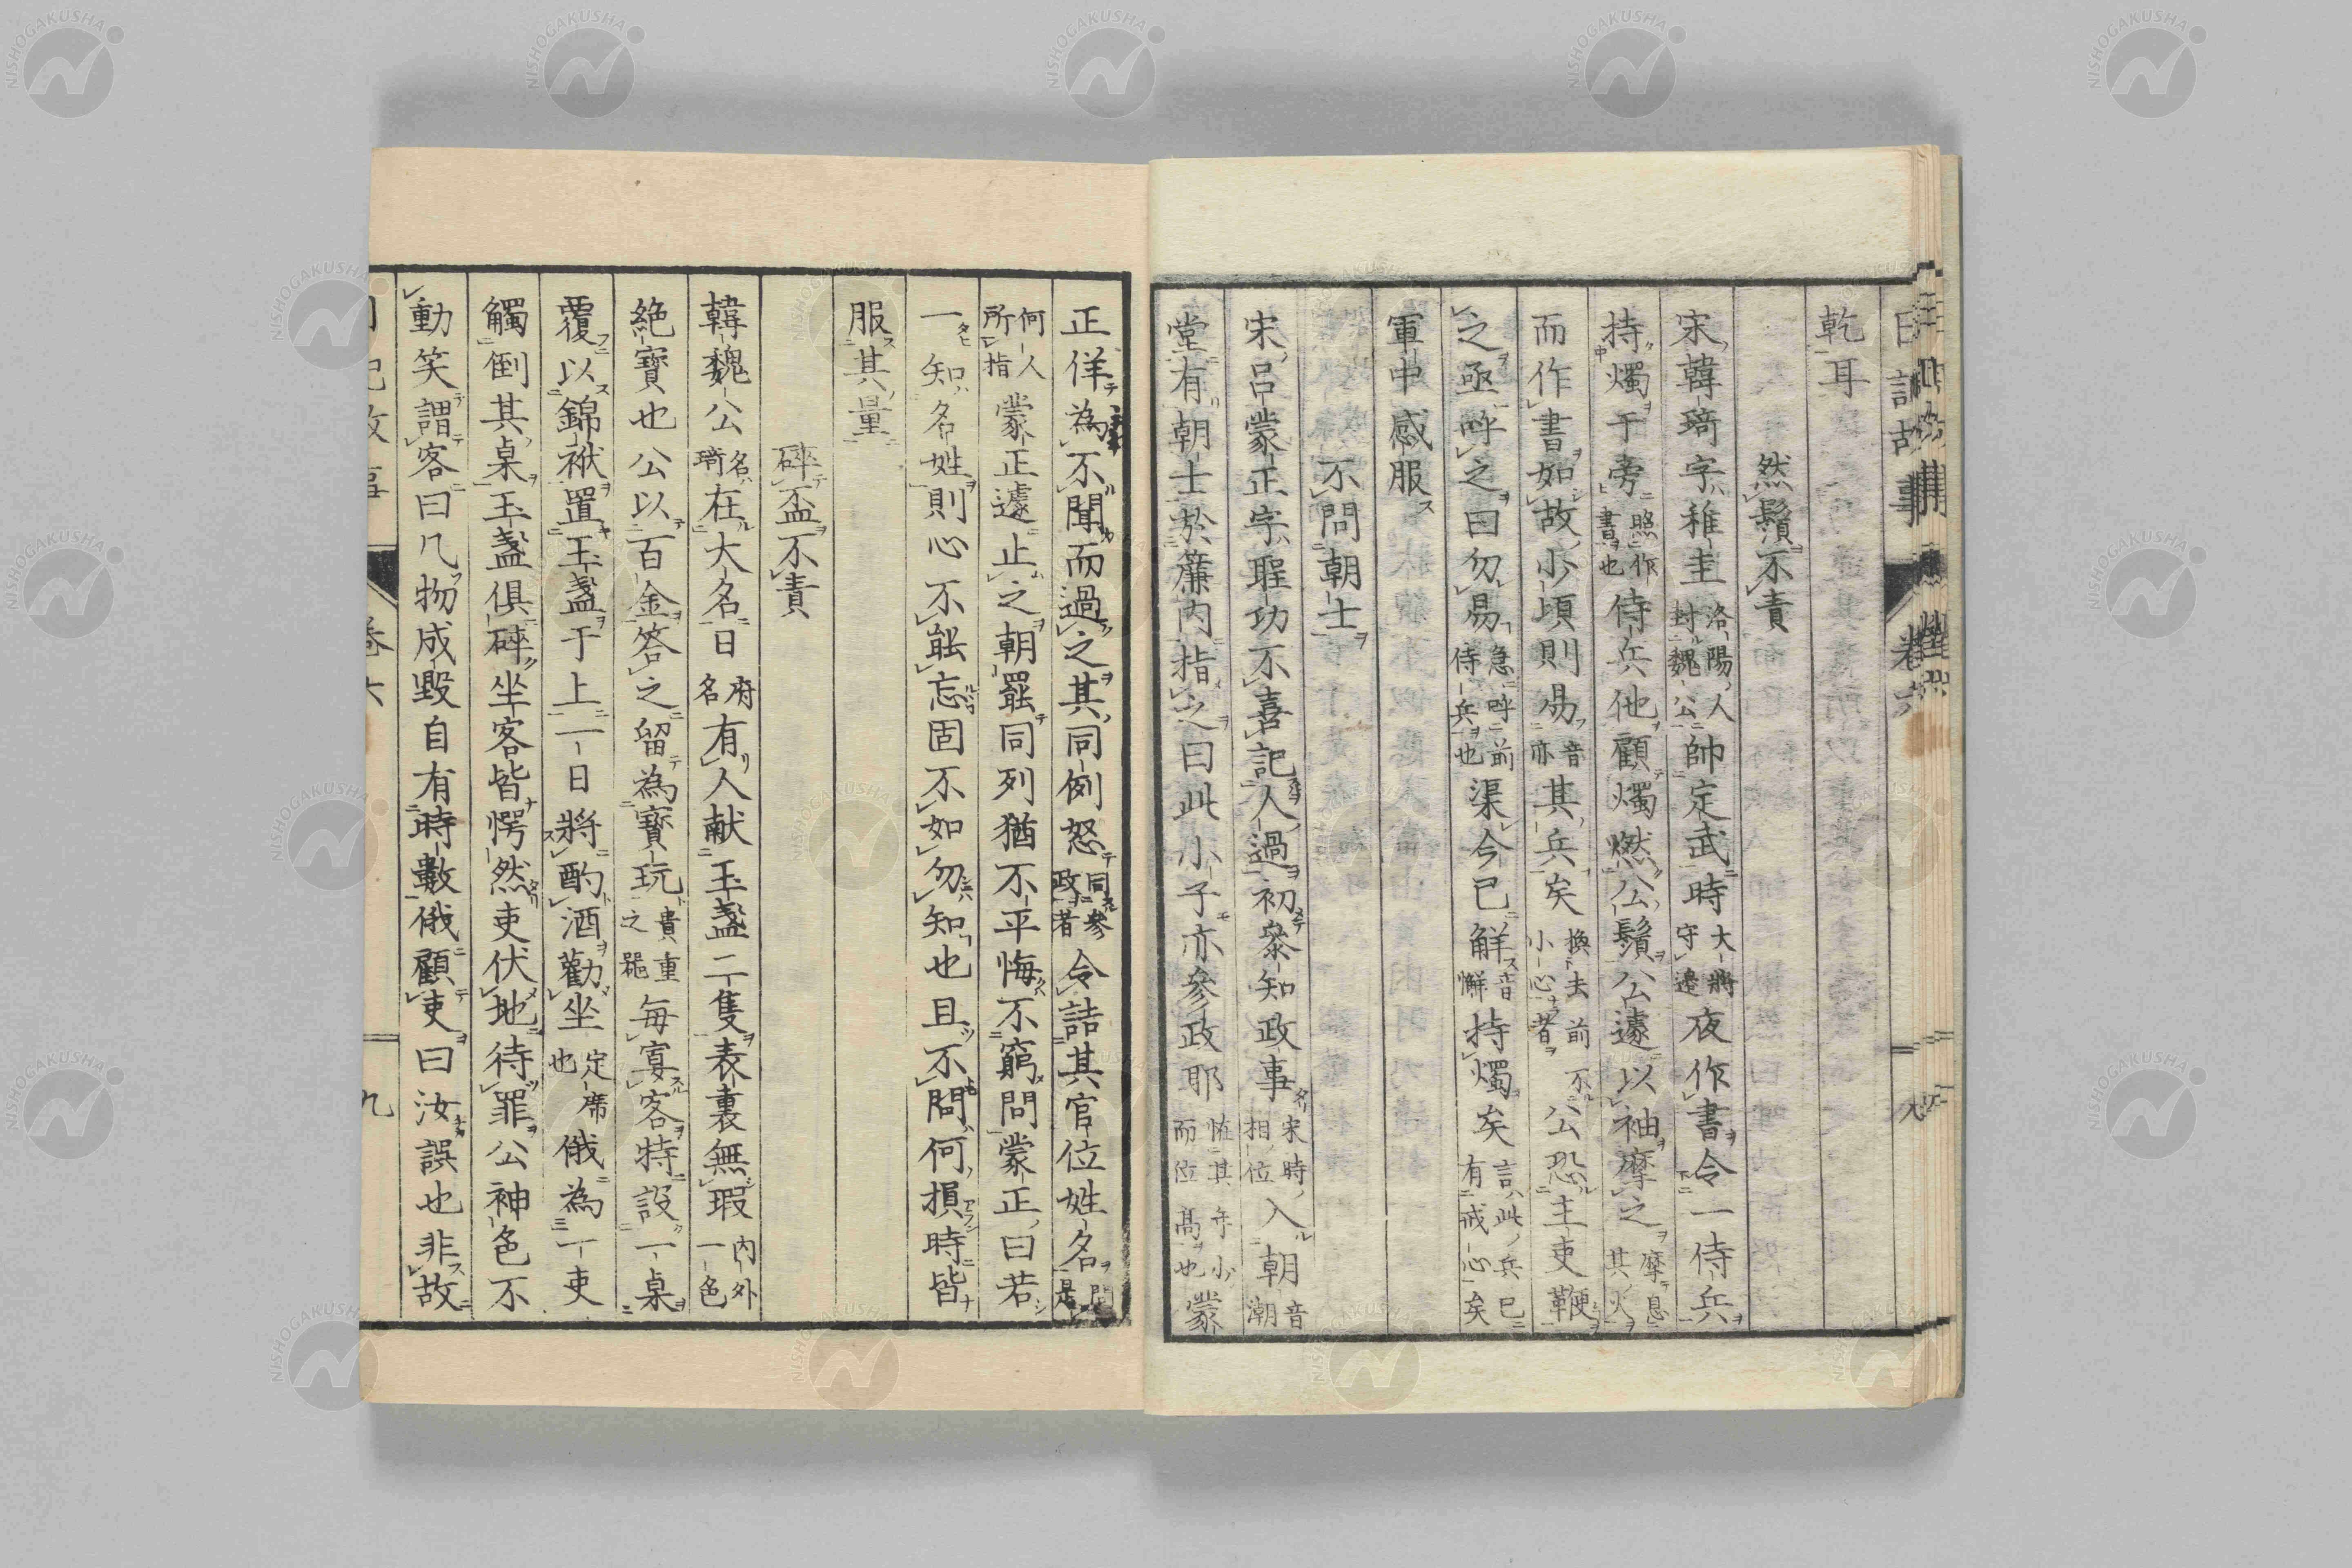 乾耳
然鬚不責
宋韓琦字稚圭洛陽人封魏公帥定武時大將守邊夜作書令一侍兵
持燭于旁照作書也侍兵他顧燭燃公鬚公遽以袖摩之摩息其火
而作書如故少頃則易音亦其兵矣換去前不小心者公恐主吏鞭
之亟呼之曰勿易急呼前侍兵也渠今已解音懈持燭矣言此兵已有戒心矣
軍中感服
不問朝士
宋呂蒙正字聖功不喜記人過初參知政事宋時相位入朝音潮
堂有朝士於簾內指之曰此小子亦參政耶怪其年小而位高也蒙
正佯為不聞而過之其同例怒同參政者令詰其官位姓名問是
何人所指蒙正遽止之朝罷同列猶不平悔不窮問蒙正曰若
一知名姓則心不能忘固不如勿知也且不問何損時皆
服其量
碎盃不責
韓魏公名琦在大名日府名有人献玉盞二隻表裏無瑕內外一色
絕寶也公以百金答之留為寶玩貴重之器每宴客特設一桌
覆以錦袱置玉盞于上一日將酌酒勸坐定席也俄為一吏
觸倒其桌玉盞俱碎坐客皆愕然吏伏地待罪公神色不
動笑謂客曰凡物成毀自有時數俄顧吏曰汝誤也非故
日記故事 卷六 九
NISHOGAKUSHA